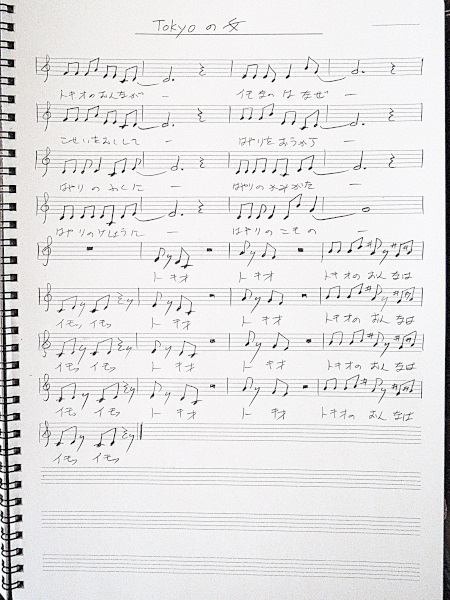 Tokyoの女
トキオのおんなが ー イモなのはなぜ ー
こせいをおしして ー はやりをおうから ー
はやりのふくに ー はやりのかみがた ー
はやりのけしょうに ー はやりのこもの ー
トキオ トキオ トキオのおんなは
イモッ イモッ トキオ トキオ トキオのおんなは
イモッ イモッ トキオ トキオ トキオのおんなは
イモッ イモッ トキオ トキオ トキオのおんなは
イモッ イモッ